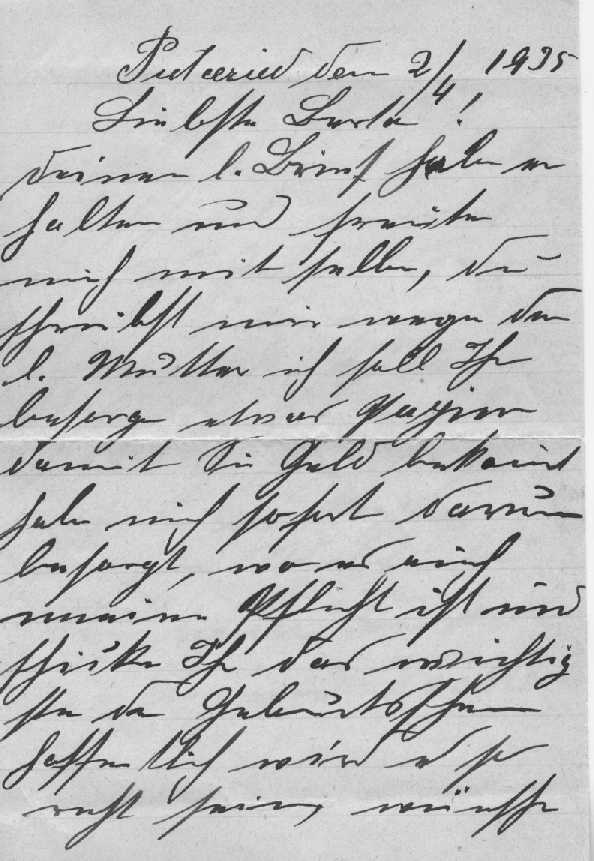 den 2/4 1935
Liebste Berta!
deinen l. Brief habe er
halten und freute
mich mit selben, du
schreibst mir wegen der
l. Mutter ich soll Ihr
besorgen etwas Papier
damit Sie Geld bekomt
habe mich sofort darum
besorgt, wo es auch
meine Pflicht ist und
schicke Ihr das wichtig
ste den Geburtsschein
hoffentlich wird es so
recht sein, wünsche